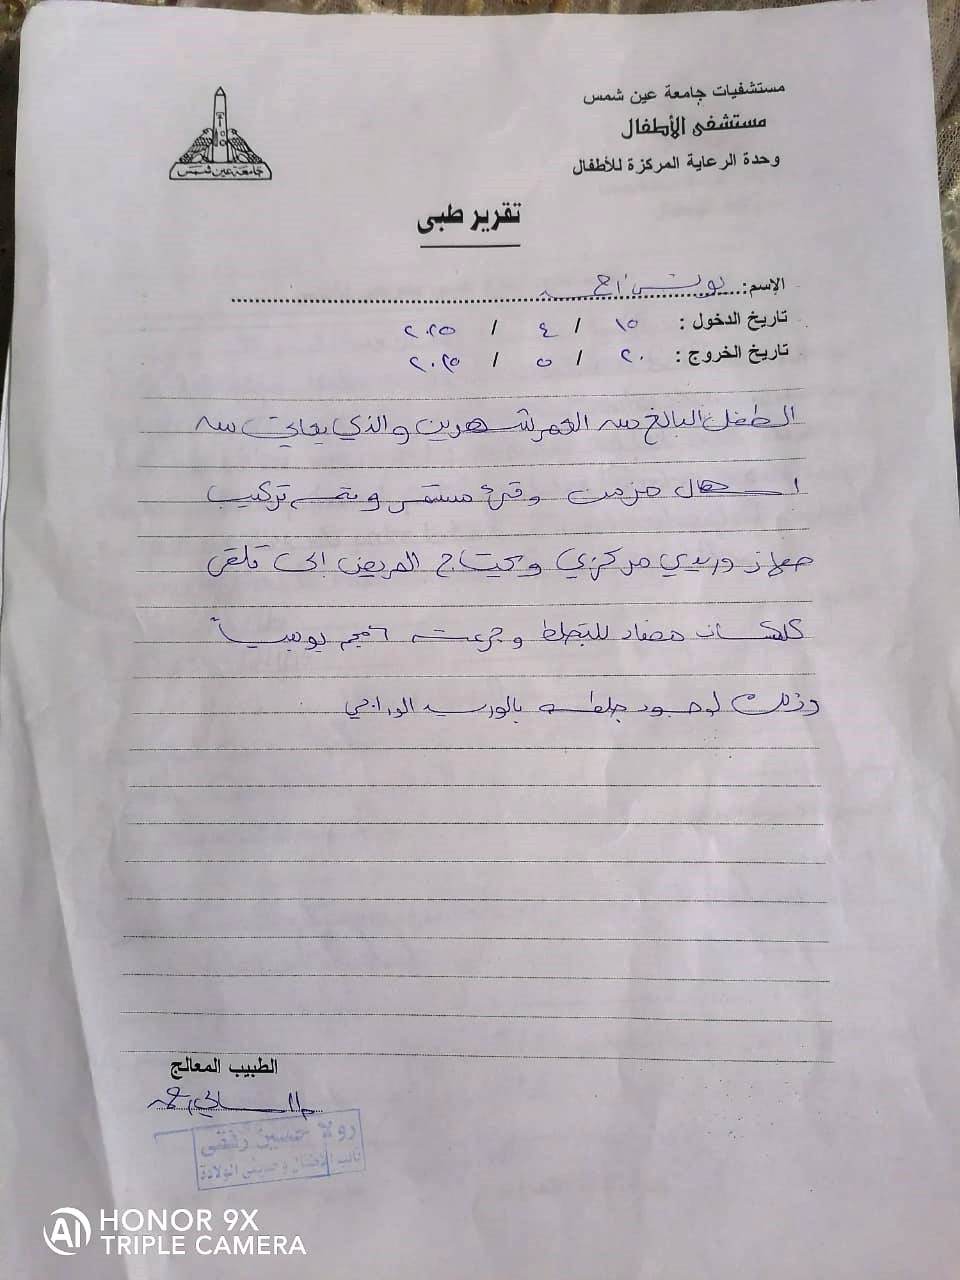 مستشفيات جامعة عين شمس
مستشفى الأطفال
وحدة الرعاية المركزة للأطفال
جامعة عين شمس
تقرير طبى
الإسم: يونس احمد
تاريخ الدخول : ١٥ / ٤ / ٢٠٢٥
تاريخ الخروج : ٢٠ / ٥ / ٢٠٢٥
الطفل البالغ من العمر شهرين والذي يعاني من
اسهال مزمن وقئ مستمر وتم تركيب
جهاز وريدي مركزي ويحتاج المريض إلى تلقى
كلكسان مضاد للتجلط وجرعته ٦مجم يومياً
وذلك لوجود جلطه بالوريد الوداجي
الطبيب المعالج
رولا حسين
نائب الأطفال وحديثى الولادة
HONOR 9X
TRIPLE CAMERA